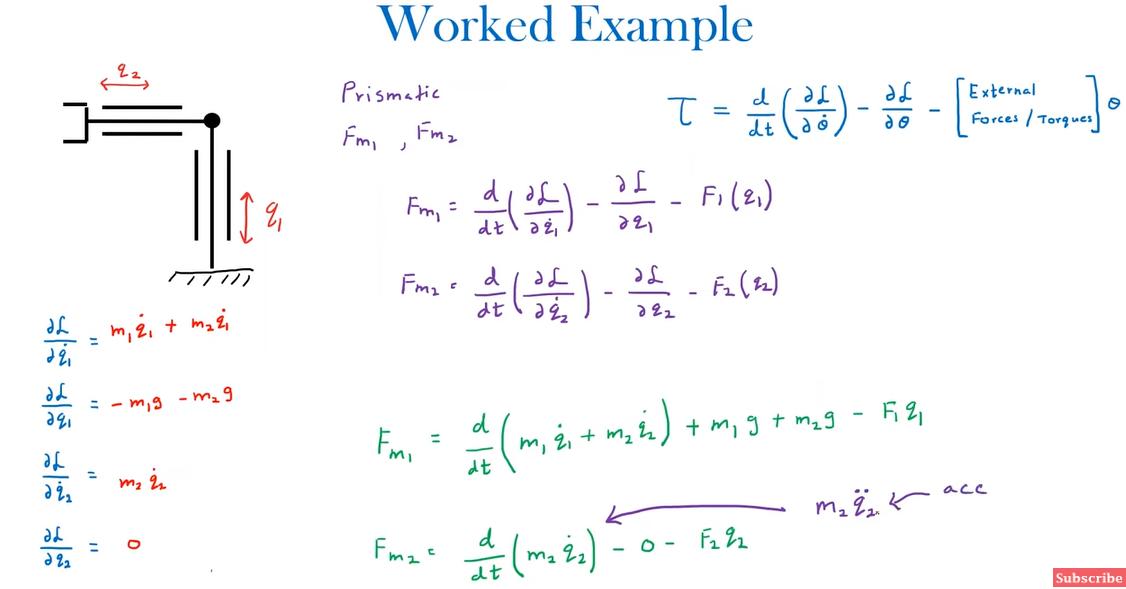 Worked Example
q₂
q₁
Prismatic
Fm₁ , Fm₂
τ = d/dt (∂ℒ/∂θ̇) − ∂ℒ/∂θ − [External Forces / Torques] θ
Fm₁ = d/dt (∂ℒ/∂q̇₁) − ∂ℒ/∂q₁ − F₁(q₁)
Fm₂ = d/dt (∂ℒ/∂q̇₂) − ∂ℒ/∂q₂ − F₂(q₂)
∂ℒ/∂q̇₁ = m₁q̇₁ + m₂q̇₁
∂ℒ/∂q₁ = − m₁g − m₂g
∂ℒ/∂q̇₂ = m₂ q̇₂
∂ℒ/∂q₂ = 0
Fm₁ = d/dt (m₁ q̇₁ + m₂ q̇₂) + m₁ g + m₂g − F₁ q₁
m₂ q̈₂ ← acc
Fm₂ = d/dt (m₂ q̇₂) − 0 − F₂ q₂
Subscribe